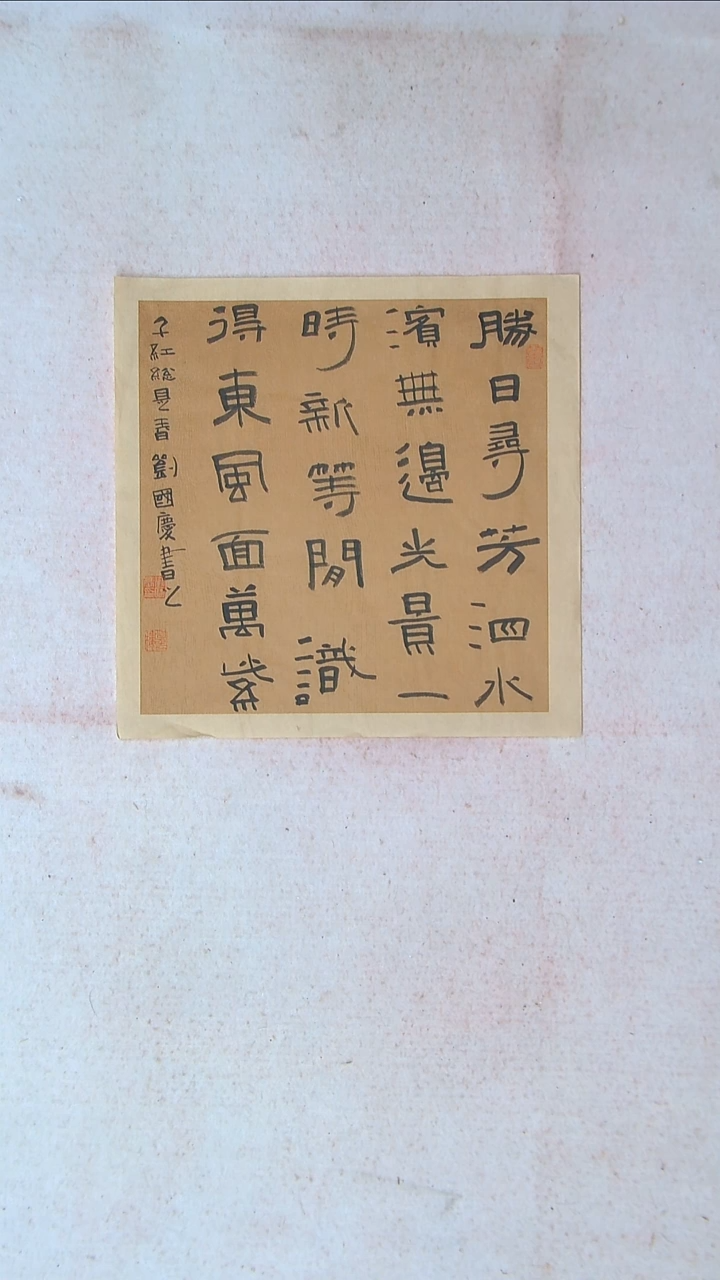 勝日尋芳泗水
濱無邊光景一
時新等閒識
得東風面萬紫
千紅總是春劉國慶書